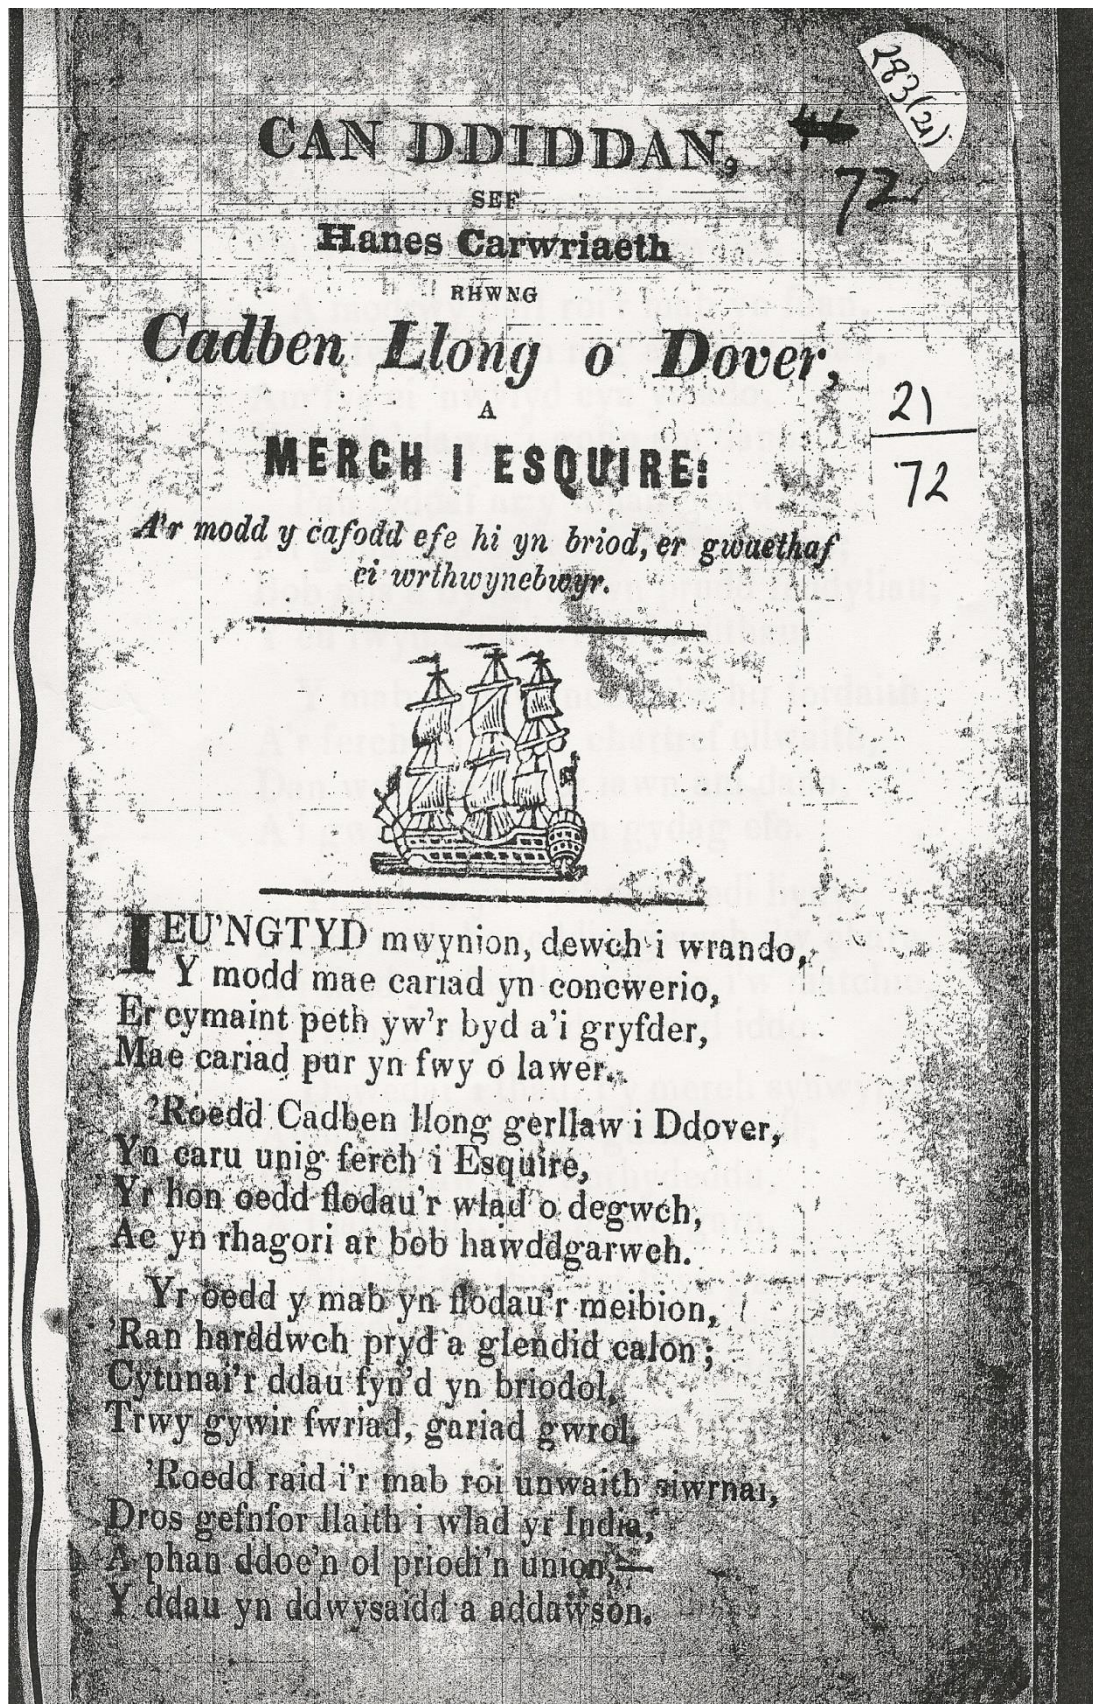 283(21)
72
CAN DDIDDAN,
SEF
Hanes Carwriaeth
RHWNG
Cadben Llong o Dover,
A
MERCH I ESQUIRE:
21
72
A'r modd y cafodd efe hi yn briod, er gwaethaf
ei wrthwynebwyr.
IEU'NGTYD mwynion, dewch i wrando,
Y modd mae cariad yn concwerio,
Er cymaint peth yw'r byd a'i gryfder,
Mae cariad pur yn fwy o lawer.
'Roedd Cadben llong gerllaw i Ddover,
Yn caru unig ferch i Esquire,
Yr hon oedd flodau'r wlad o degwch,
Ac yn rhagori ar bob hawddgarwch.
Yr oedd y mab yn flodau'r meibion,
'Ran harddwch pryd a glendid calon;
Cytunai'r ddau fyn'd yn briodol,
Trwy gywir fwriad, gariad gwrol.
'Roedd raid i'r mab roi unwaith siwrnai,
Dros gefnfor llaith i wlad yr India,
A phan ddoe'n ol priodi'n union,—
Y ddau yn ddwysaidd a addawson.